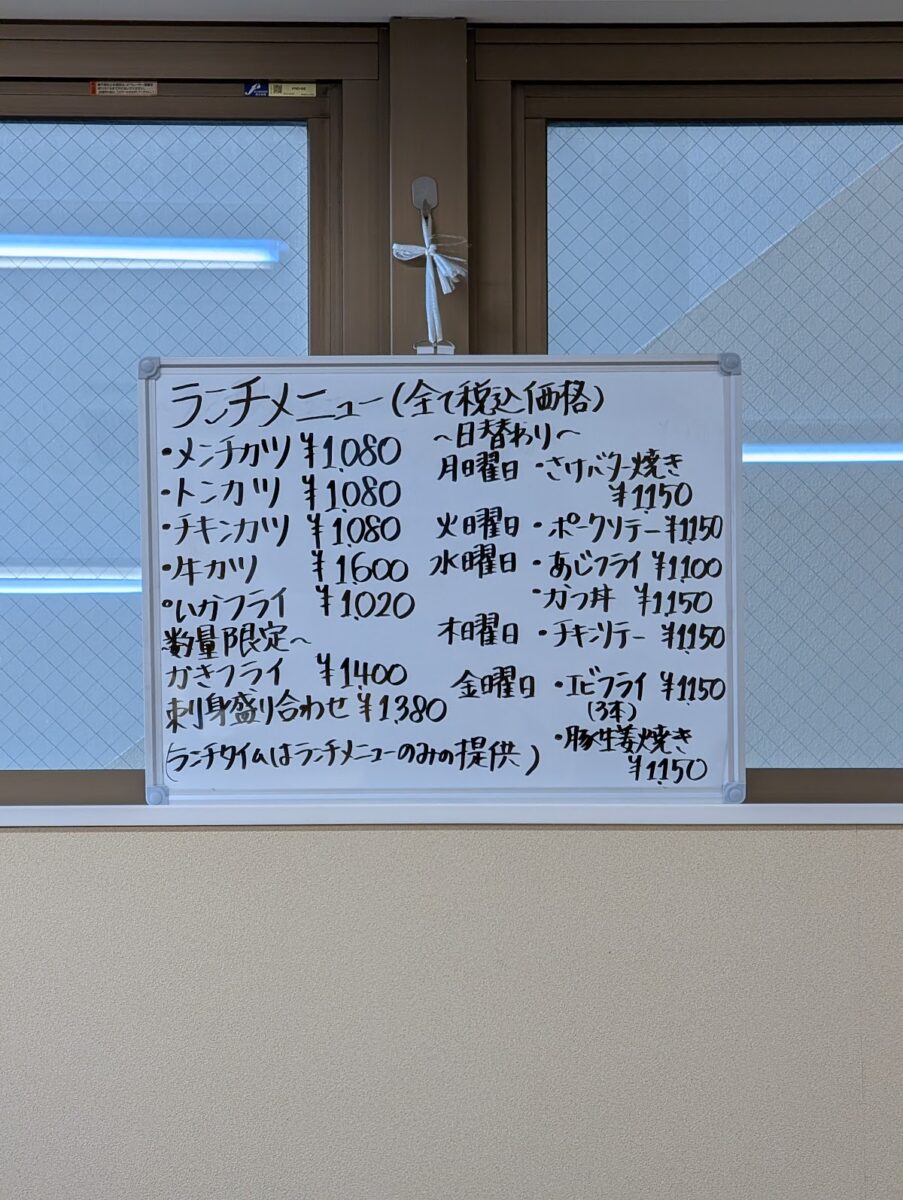 ランチメニュー(全て税込価格)
・メンチカツ ¥1,080
・トンカツ ¥1,080
・チキンカツ ¥1,080
・牛カツ ¥1,600
・いかフライ ¥1,020
数量限定〜
かきフライ ¥1,400
刺身盛り合わせ ¥1,380
(ランチタイムはランチメニューのみの提供)
〜日替わり〜
月曜日・さけバター焼き
¥1,150
火曜日・ポークソテー ¥1,150
水曜日・あじフライ ¥1,100
・カツ丼 ¥1,150
木曜日・チキンソテー ¥1,150
金曜日・エビフライ ¥1,150
(3本)
・豚生姜焼き
¥1,150